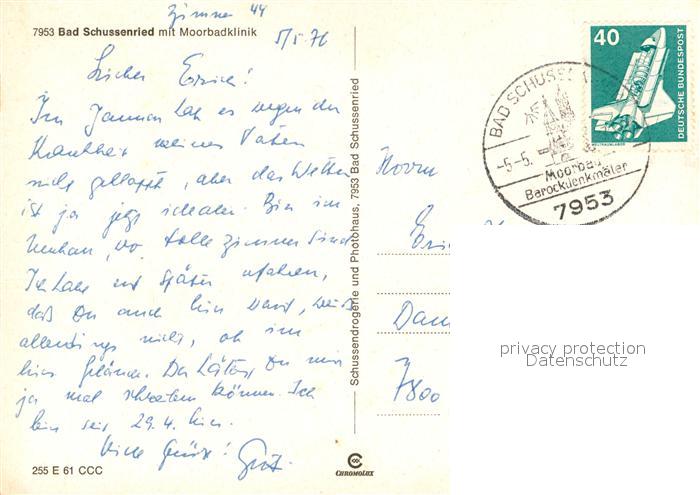 Zimmer 44
7953 Bad Schussenried mit Moorbadklinik
5/5.76
Lieber Erich!
Im Januar hat es wegen der
Krankheit meines Vaters
nicht geklappt, aber das Wetter
ist ja jetzt idealer. Bin im
Neubau, wo tolle Zimmer sind
Ich habe erst später erfahren,
daß Du auch hier warst, weiß
allerdings nicht, ob im
hies. Gelände. Du hättest Du mir
ja mal schreiben können. Ich
bin seit 29.4. hier.
Viele Grüße!
255 E 61 CCC
Schussendrogerie und Photohaus, 7953 Bad Schussenried
CHROMOLUX
Herrn
7800
BAD SCHUSSEN
-5.-5.
Moorbad
Barockdenkmäler
7953
40
DEUTSCHE BUNDESPOST
WELTRAUMLABOR
privacy protection
Datenschutz